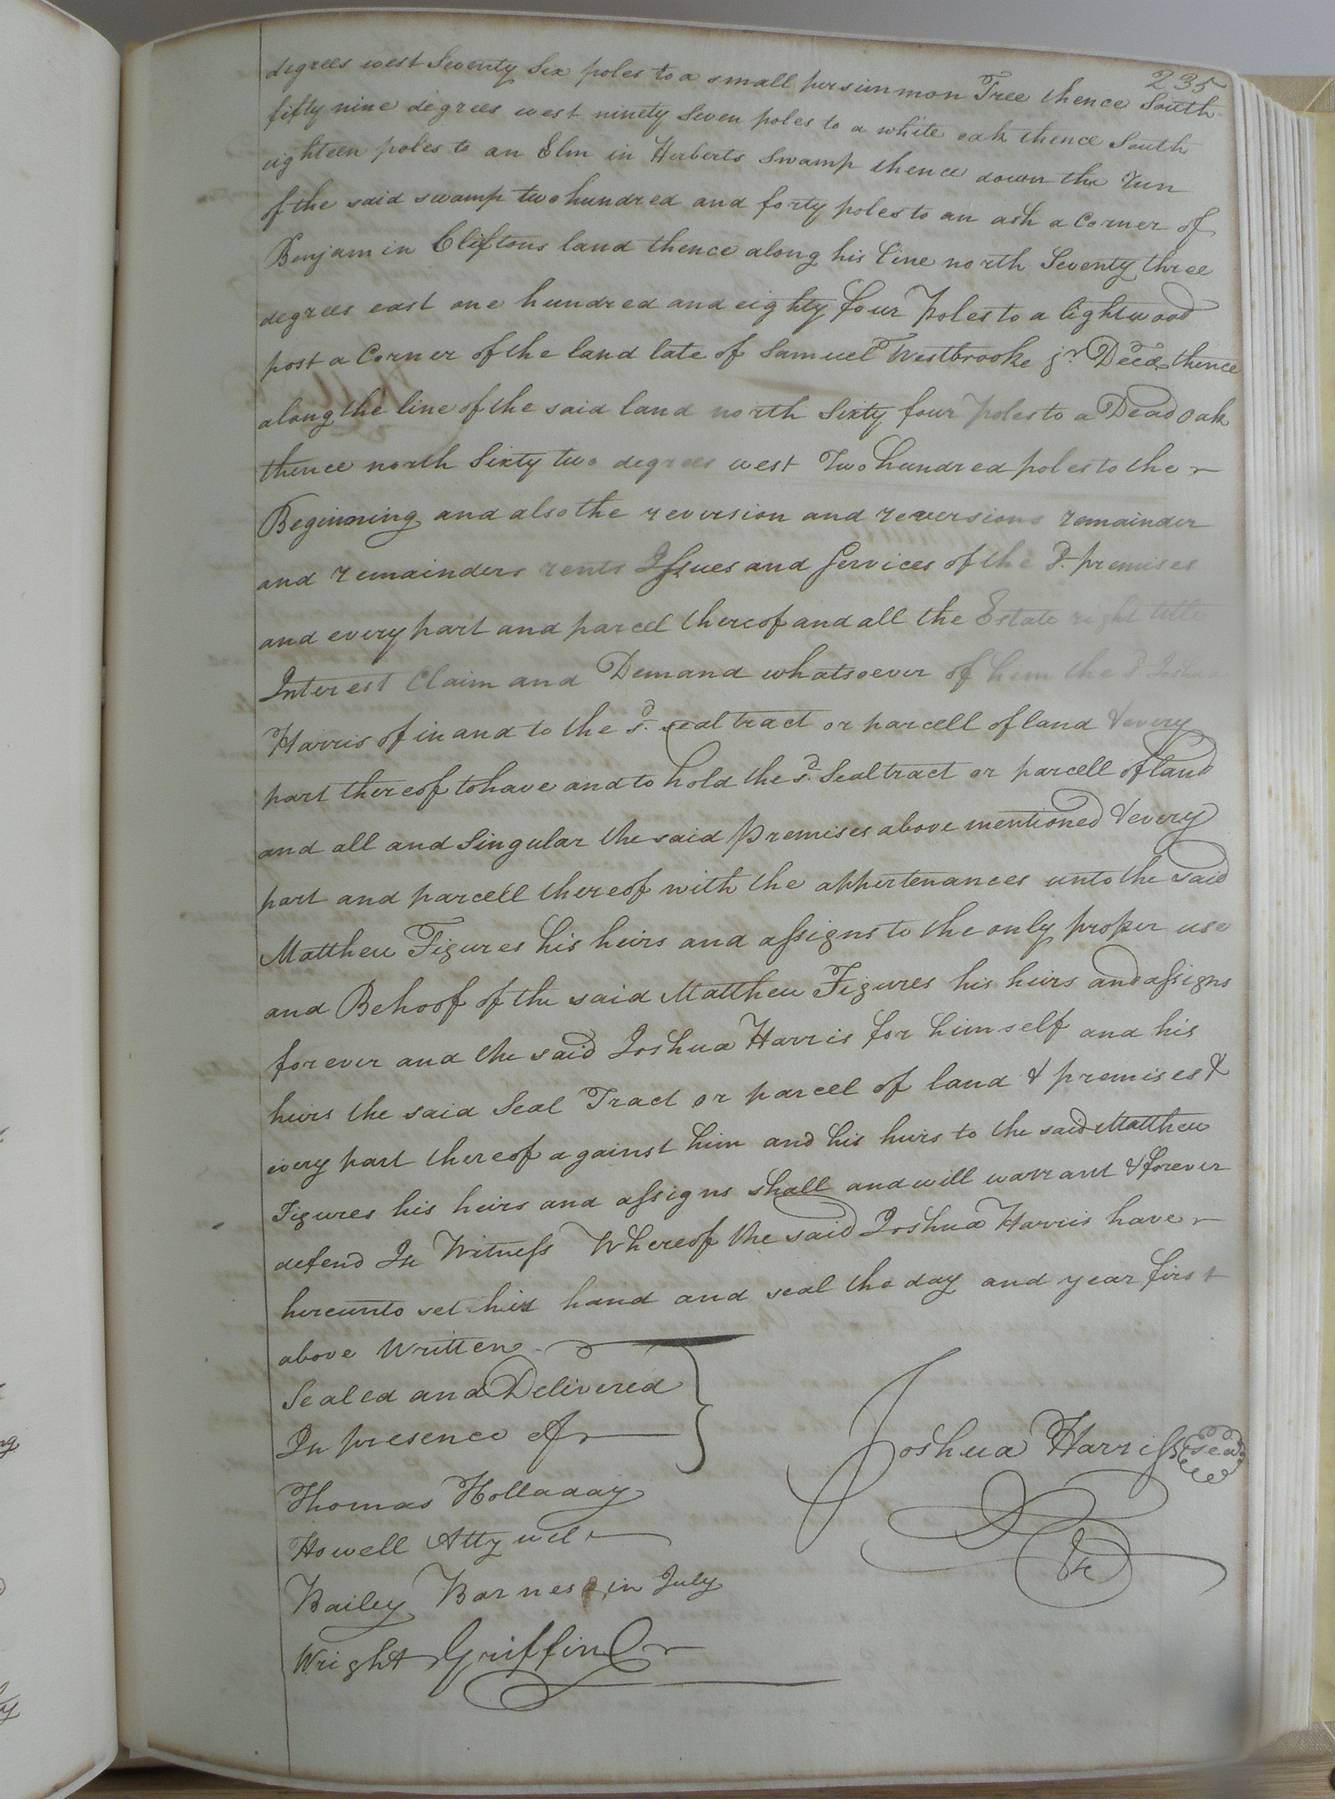 235
degrees west Seventy Six poles to a small persimmon Tree thence South
fifty nine degrees west ninety Seven poles to a white oak thence South
eighteen poles to an Elm in Herberts Swamp thence down the run
of the said swamp two hundred and forty poles to an ash a Corner of
Benjamin Cliftons land thence along his line north Seventy three
degrees east one hundred and eighty four poles to a lightwood
post a Corner of the land late of Samuel Westbrooke jr. Decd. thence
along the line of the said land north Sixty four poles to a Dead oak
thence north Sixty two degrees west Two hundred poles to the
Beginning and also the reversion and reversions remainder
and remainders rents Issues and Services of the sd. premises
and every part and parcel thereof and all the Estate right title
Interest Claim and Demand whatsoever of him the sd. Joshua
Harris of in and to the sd. seal tract or parcell of land & every
part thereof to have and to hold the sd. Seal tract or parcell of land
and all and Singular the said premises above mentioned & every
part and parcell thereof with the appertenances unto the said
Mattheu Figures his heirs and assigns to the only proper use
and Behoof of the said Mattheu Figures his heirs and assigns
forever and the said Joshua Harris for himself and his
heirs the said Seal Tract or parcel of land & premises &
every part thereof against him and his heirs to the said Mattheu
Figures his heirs and assigns shall and will warrant & forever
defend In Witness Whereof the said Joshua Harris have
hereunto set his hand and seal the day and year first
above Written
Sealed and Delivered
In presence of
Joshua Harriss seal
Thomas Holladay
Howell Attywel
Bailey Barnes in July
Wright Griffin